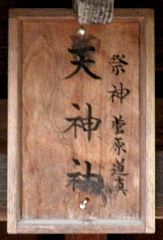 祭神 菅原道真
天神社